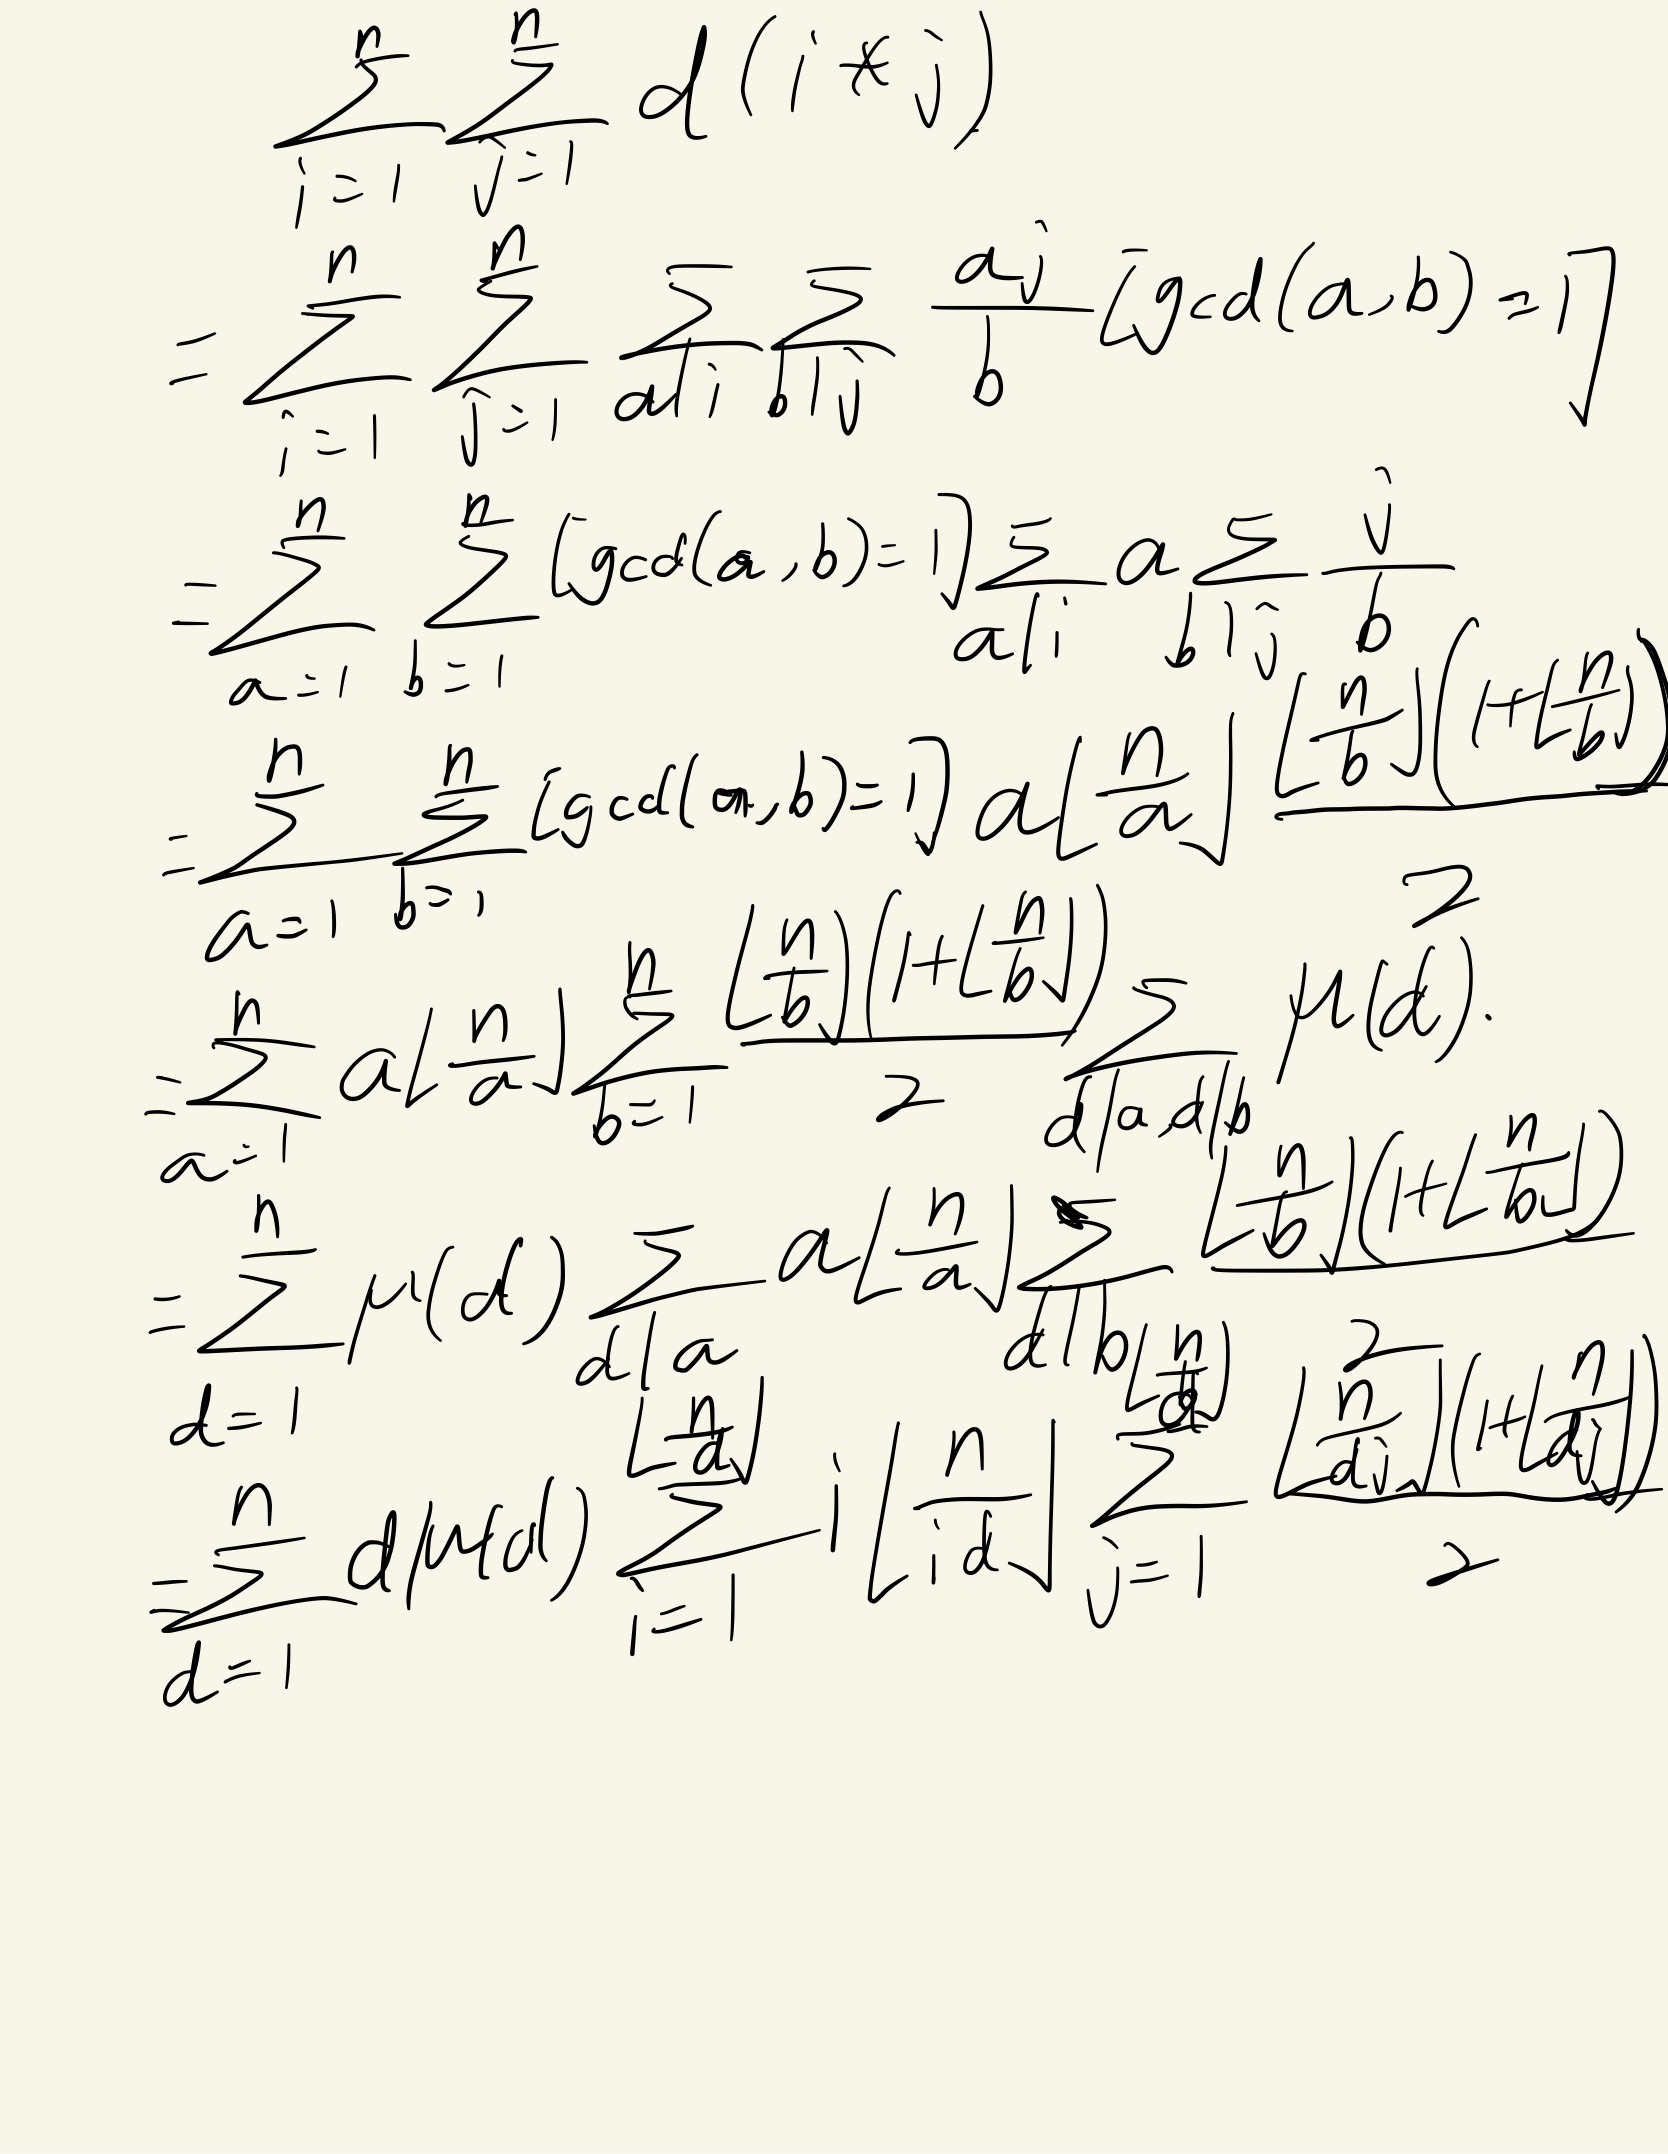 \sum_{i=1}^{n} \sum_{j=1}^{n} d(i * j)
= \sum_{i=1}^{n} \sum_{j=1}^{n} \sum_{a|i} \sum_{b|j} \frac{aj}{b} [gcd(a,b)=1]
= \sum_{a=1}^{n} \sum_{b=1}^{n} [gcd(a,b)=1] \sum_{a|i} a \sum_{b|j} \frac{j}{b}
= \sum_{a=1}^{n} \sum_{b=1}^{n} [gcd(a,b)=1] a \lfloor \frac{n}{a} \rfloor \frac{\lfloor \frac{n}{b} \rfloor (1+\lfloor \frac{n}{b} \rfloor)}{2}
= \sum_{a=1}^{n} a \lfloor \frac{n}{a} \rfloor \sum_{b=1}^{n} \frac{\lfloor \frac{n}{b} \rfloor (1+\lfloor \frac{n}{b} \rfloor)}{2} \sum_{d|a,d|b} \mu(d).
= \sum_{d=1}^{n} \mu(d) \sum_{d|a} a \lfloor \frac{n}{a} \rfloor \sum_{d|b} \frac{\lfloor \frac{n}{b} \rfloor (1+\lfloor \frac{n}{b} \rfloor)}{2}
= \sum_{d=1}^{n} d \mu(d) \sum_{i=1}^{\lfloor \frac{n}{d} \rfloor} i \lfloor \frac{n}{id} \rfloor \sum_{j=1}^{\lfloor \frac{n}{d} \rfloor} \frac{\lfloor \frac{n}{dj} \rfloor (1+\lfloor \frac{n}{dj} \rfloor)}{2}